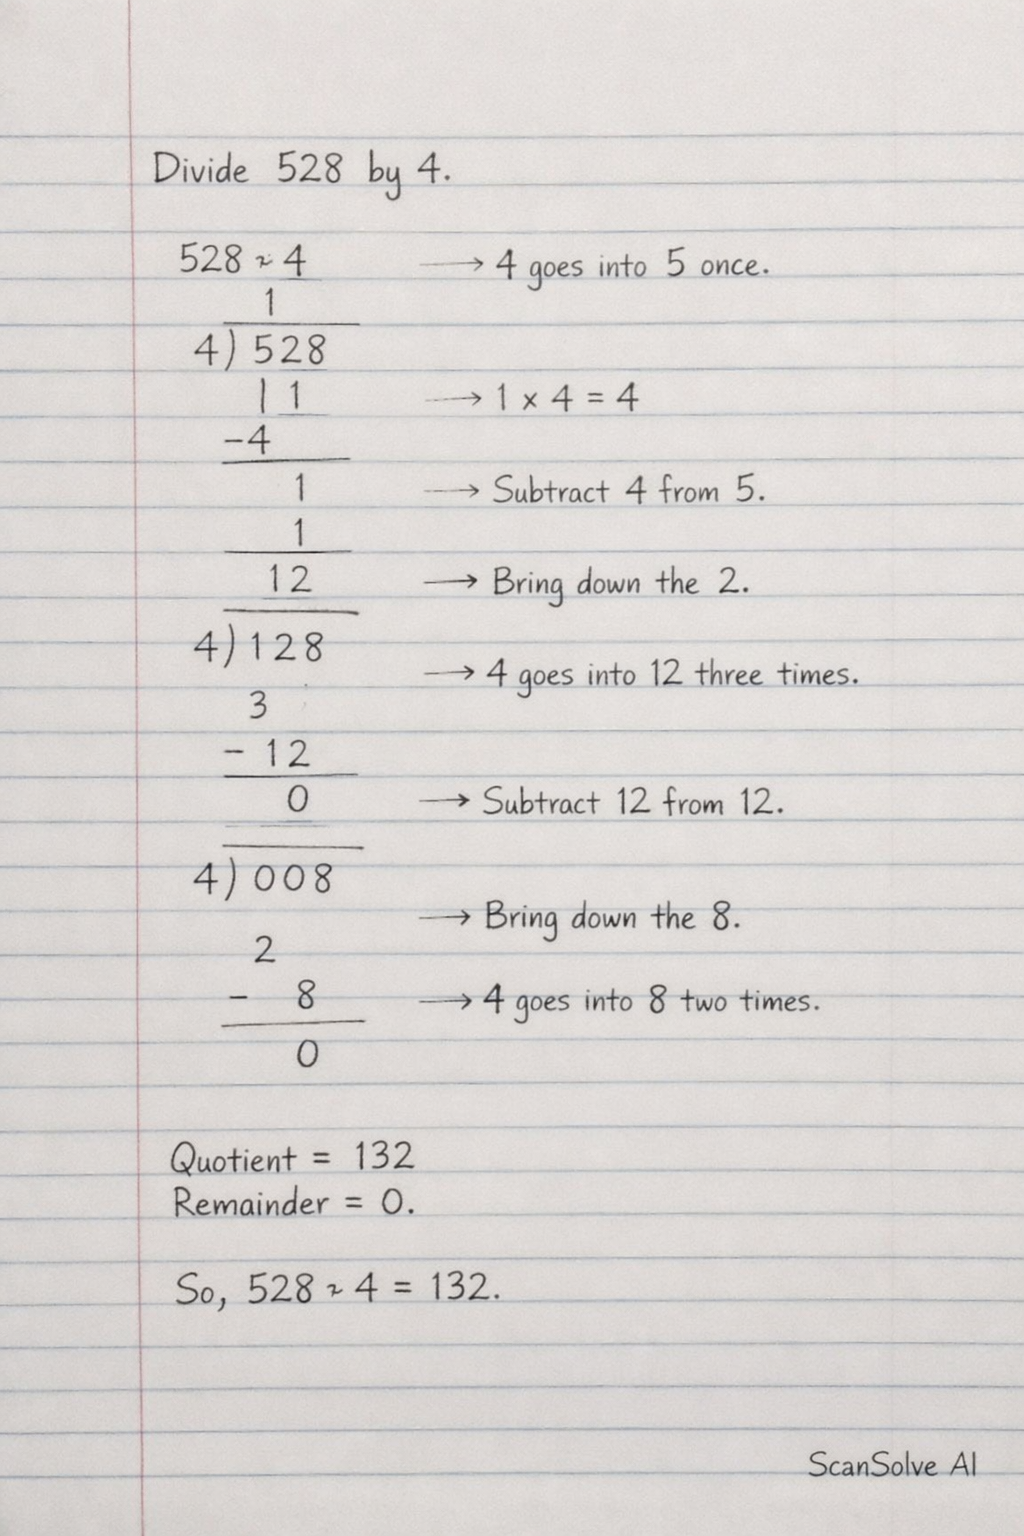 Divide 528 by 4.
528 ~ 4 → 4 goes into 5 once.
1
4)528
11 → 1 × 4 = 4
-4
1 → Subtract 4 from 5.
1
12 → Bring down the 2.
4)128
→ 4 goes into 12 three times.
3
- 12
0 → Subtract 12 from 12.
4)008
→ Bring down the 8.
2
- 8 → 4 goes into 8 two times.
0
Quotient = 132
Remainder = 0.
So, 528 ~ 4 = 132.
ScanSolve AI